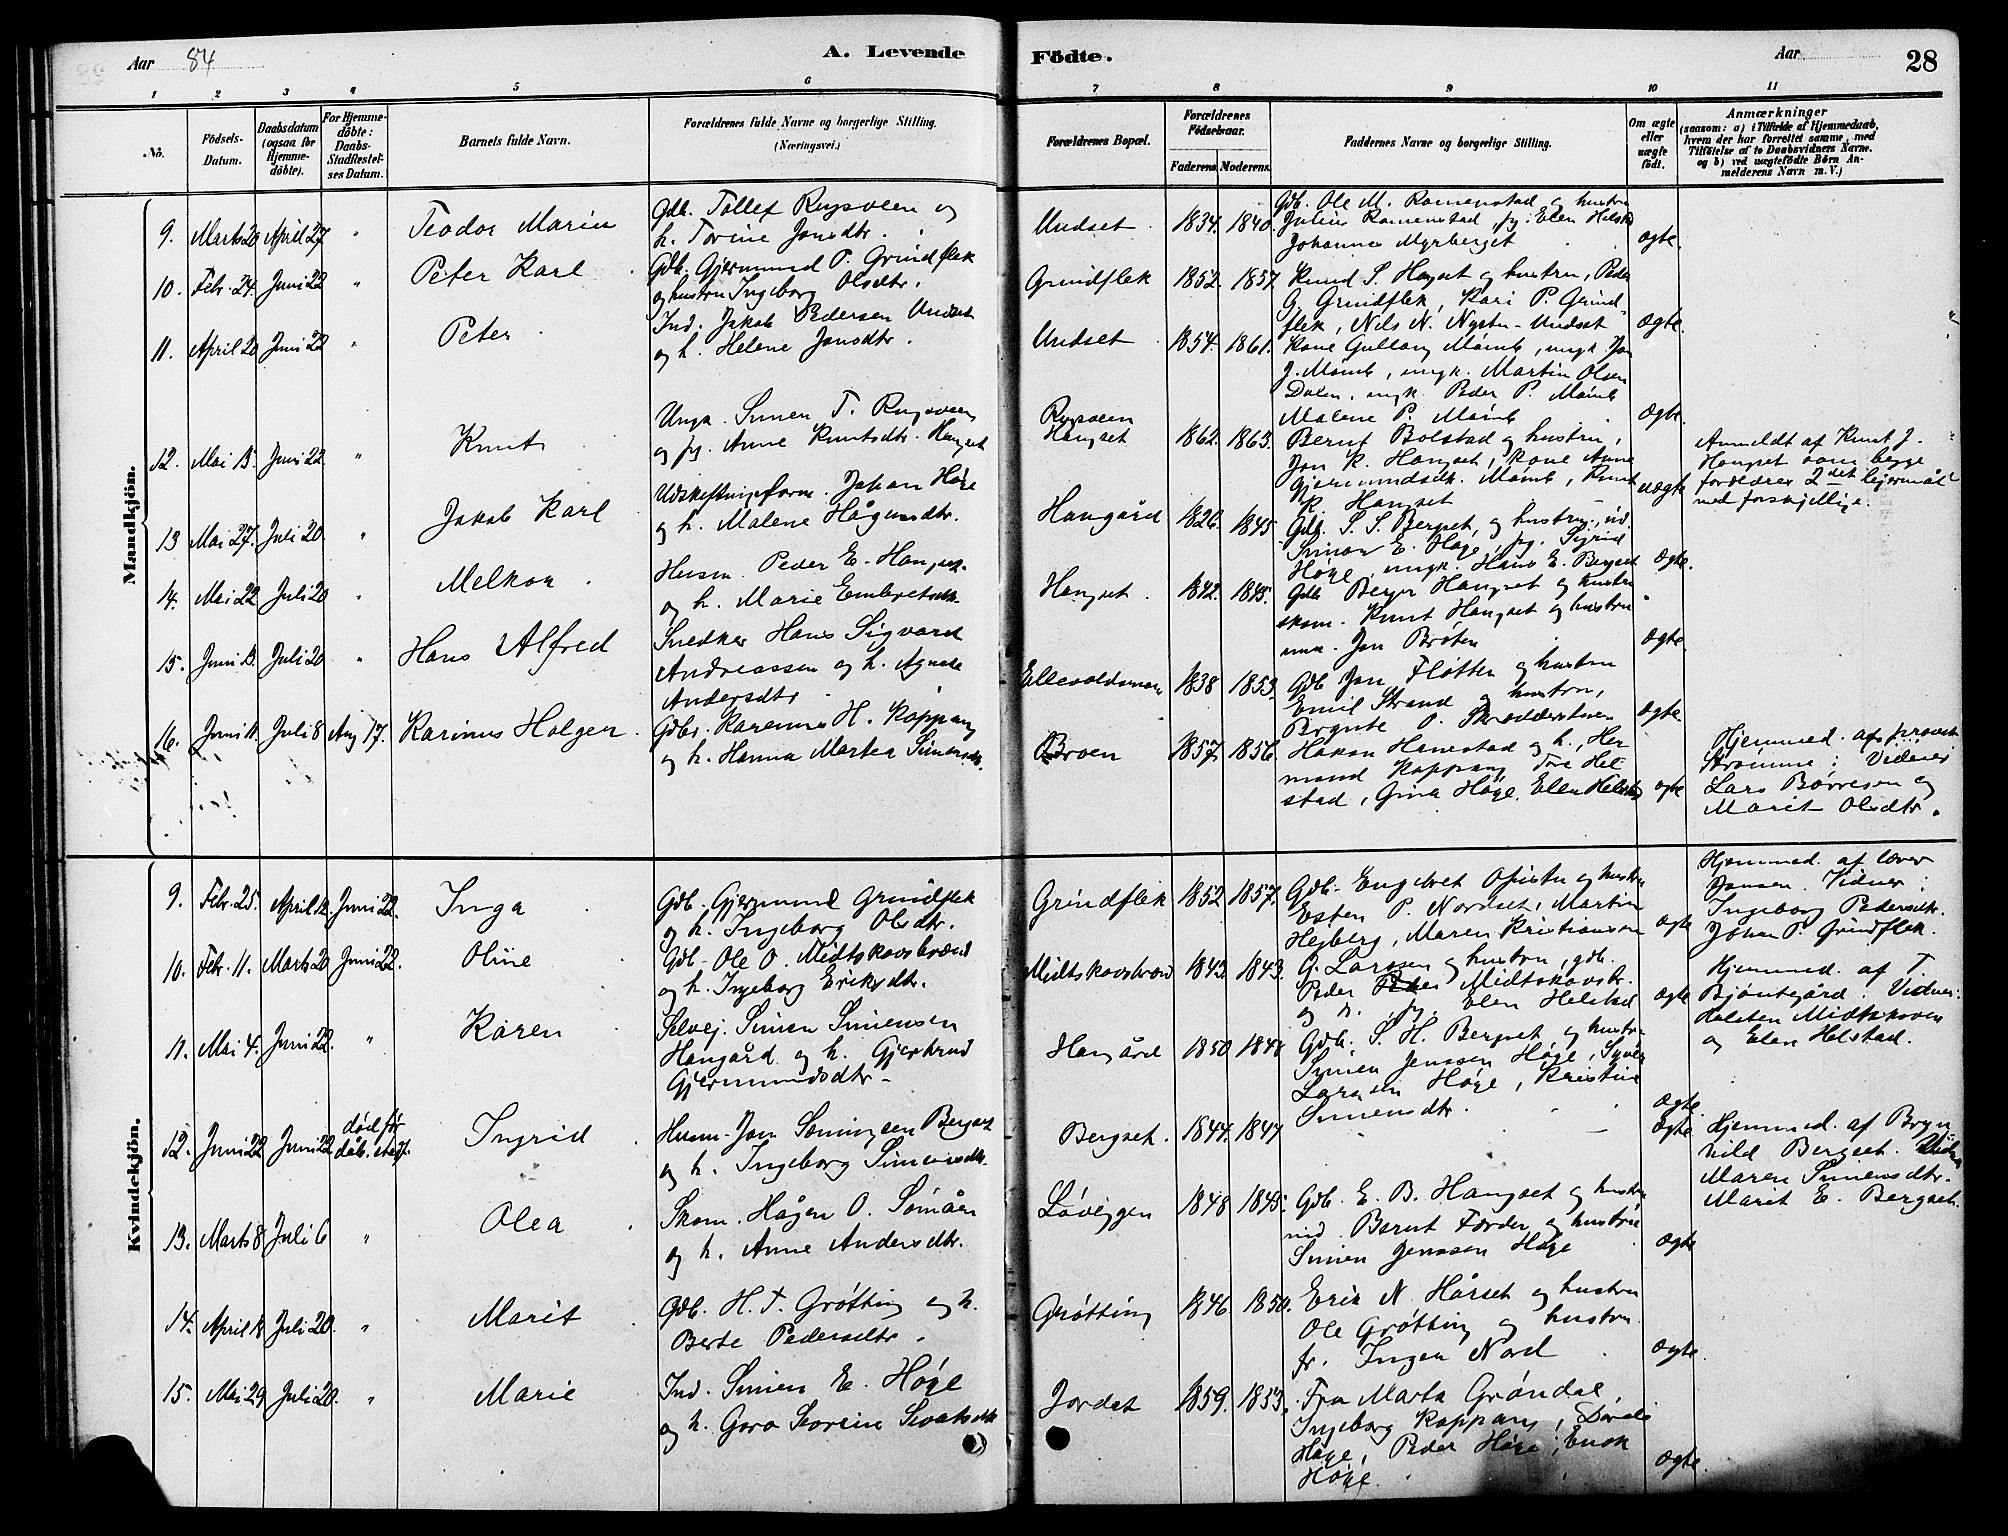 Aar 84
A. Levende Födte.
Aar
28
1 2 3 4 5 6 7 8 9 10 11
No.
Födsels-Datum.
Daabsdatum (ogsaa for Hjemme-döbte).
For Hjemme-döbte: Daabs-Stadfæstel-ses Datum.
Barnets fulde Navn.
Forældrenes fulde Navne og borgerlige Stilling. (Næringsvei.)
Forældrenes Bopæl.
Forældrenes Födselsaar.
Faderens. Moderens.
Faddernes Navne og borgerlige Stilling.
Om ægte eller uægte födt.
Anmærkninger
(saasom: a) i Tilfælde af Hjemmedaab,
hvem der har forrettet samme, med
Tilföielse af to Daabsvidners Navne,
og b) ved uægtefödte Börn An-
melderens Navn m. V.)
Mandkjön.
9. Marts 20 April 27 " Teodor Marin
Gdb. Tollef Rugsveen og
h. Torine Jonsdtr.
Undset 1834. 1840.
Gdb. Ole M. Romenstad og hustru
Julius Romenstad, pg. Elen Helstad
Johannes Myrberget
Ægte.
10. Febr. 24. Juni 22 " Peter Karl
Gdb. Gjermund P. Grindflek
og hustru Ingeborg Olsdtr.
Grindflek 1852. 1857.
Knud S. Hangset og hustru, Peder
G. Grindflek, Kari P. Grind-
flek, Nils N. Nystu-Undset
Ægte.
11. April 20 Juni 22 " Peter
Ind. Jakob Pedersen Undset
og h. Helene Jonsdtr.
Undset 1854. 1861.
Kone Gullaug Mømb, ungk. Jon
J. Mømb, ungk. Martin Olsen
Dalen, ungk. Peder P. Mømb
Malene P. Mømb
Ægte.
12. Mai 15. Juni 22 " Knut
Ungk. Simen T. Rugsveen
og pg. Anne Knutsdtr. Hangset
Rugsveen
Hangset 1862. 1863.
Bernt Bolstad og hustru,
Jon K. Hangset, kone Anne
Gjermundsdtr. Mømb, Knut
K. Hangset
uægte
Anmeldt af Knut J.
Hangset som begge
forældres 2det lejermål
med forskjellige.
13 Mai 27. Juli 20 " Jakob Karl
Udskiftningsform. Johan Høge
og h. Malene Hågensdtr.
Hangård 1826. 1845
Gdb. S. S. Bergset, og hustru, ind.
Simon E. Høge, pg. Sigrid
Høge, ungk. Hans E. Bergset
Ægte.
14. Mai 22 Juli 20 " Melkor
Husm. Peder E. Hangset
og h. Marie Embretsdtr.
Hangset. 1842. 1845.
Gdb. Berger Hangset og hustru
skom. Knut Hangset og hustru
Jon Bråten
Ægte.
15. Juni 13. Juli 20 " Hans Alfred
Snedker Hans Sigvard
Andreassen og h. Agnete
Andersdtr
1838 1853.
Gdb Jon Fløtten og hustru
Emil Strand og hustru,
Bergnte O. Skrædderstuen
Ægte.
16. Juni 11. Juli 8 Aug 17. Karinus Holger
Gdbr. Karenus H. Koppang
og h. Hanna Martea Simensdtr.
Broen 1857. 1856.
Håkon Hanestad og h., Her
mand Koppang, Tore Hel
stad, Gina Høge, Elen Helstad
Ægte
Hjemmed. af provst
Strømme: Vidner
Lars Børresen og
Marit Olsdtr.
Kvindekjön.
9. Febr. 25. April 12. Juni 22. Inga
Gdb. Gjermund Grindflek
og h. Ingeborg Olsdtr.
Grindflek 1852. 1857.
Gdb. Engebret Opistu og hustru
Esten P. Nordset, Martin
Hejberg, Maren Kristiansen
Ægte
Hjemmed. af lærer
Jansen. Vidner:
Ingeborg Pedersdtr.
Johan P. Grindflek.
10. Febr. 11. Marts 20 Juni 22. Oline
Gdb. Ole O. Midtskovsbrænd
og h. Ingeborg Eriksdtr.
Midtskovsbrænd 1843. 1843.
G. Larssen og hustru, gdb.
Peder Midtskovstr.
og h. pg. Elen Helstad
Ægte
Hjemmed. af T.
Bjøntegård. Vidner:
Halsten Midtskoven
og Elen Helstad.
11. Mai 4. Juni 22. " Karen
Selvej. Simen Simensen
Hangård og h. Gjertrud
Gjermundsdtr.
Hangård 1850
Gdb. S. H. Bergset, og hustru
Simen Jenssen Høge, Syver
Larssen Høge, Kristine
Simensdtr.
Ægte
12. Juni 22 Juni 22 død før dåb. stadf. Ingrid
Husm. Jon Bergset
og h. Ingeborg Simensdtr.
Bergset. 1844. 1847
Ægte
Hjemmed. af Bryn
hild Bergset. Vidner
Maren Simensdtr.
Marit E. Bergset.
13. Marts 8 Juli 6 " Olea
Skom. Hågen O. Sømåen
og h. Anne Andersdtr.
Løveggen 1848 1845.
Gdb. E. B. Hangset og hustru
ind. Bernt Førder og hustru
Simen Jenssen Høge
Ægte
14. April 18 Juli 20. " Marit
Gdb. H. T. Grøtting og h.
Berte Pedersdtr.
Grøtting 1846 1850.
Erik N. Hårset og hustru
Ole Grøtting og hustru
fr. Inger Nord
Ægte.
15. Mai 29 Juli 20. " Marie
Ind. Simen E. Høge
og h. Goro
Jordet 1859. 1853.
Fru Marta Grøndal,
Ingeborg Koppang, Dordi
Høge, Peder Høge, Enok
Høge.
Ægte.